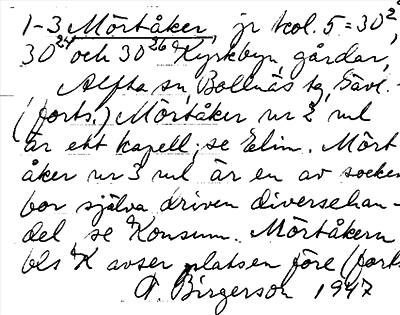 1-3 Mörtåker, jr kol. 5 = 30²
30²⁴ och 30²⁶ Kyrkbyn gårdar,
Alfta sn, Bollnäs tg, Gävl.
(forts.) Mörtåker nr 2 ml
är ett kapell, se Elim. Mört
åker nr 3 ml är en av socken
bor själva driven diversehan-
del se Konsum. Mörtåkern
bls K avser platsen före (forts
A. Birgerson 1947